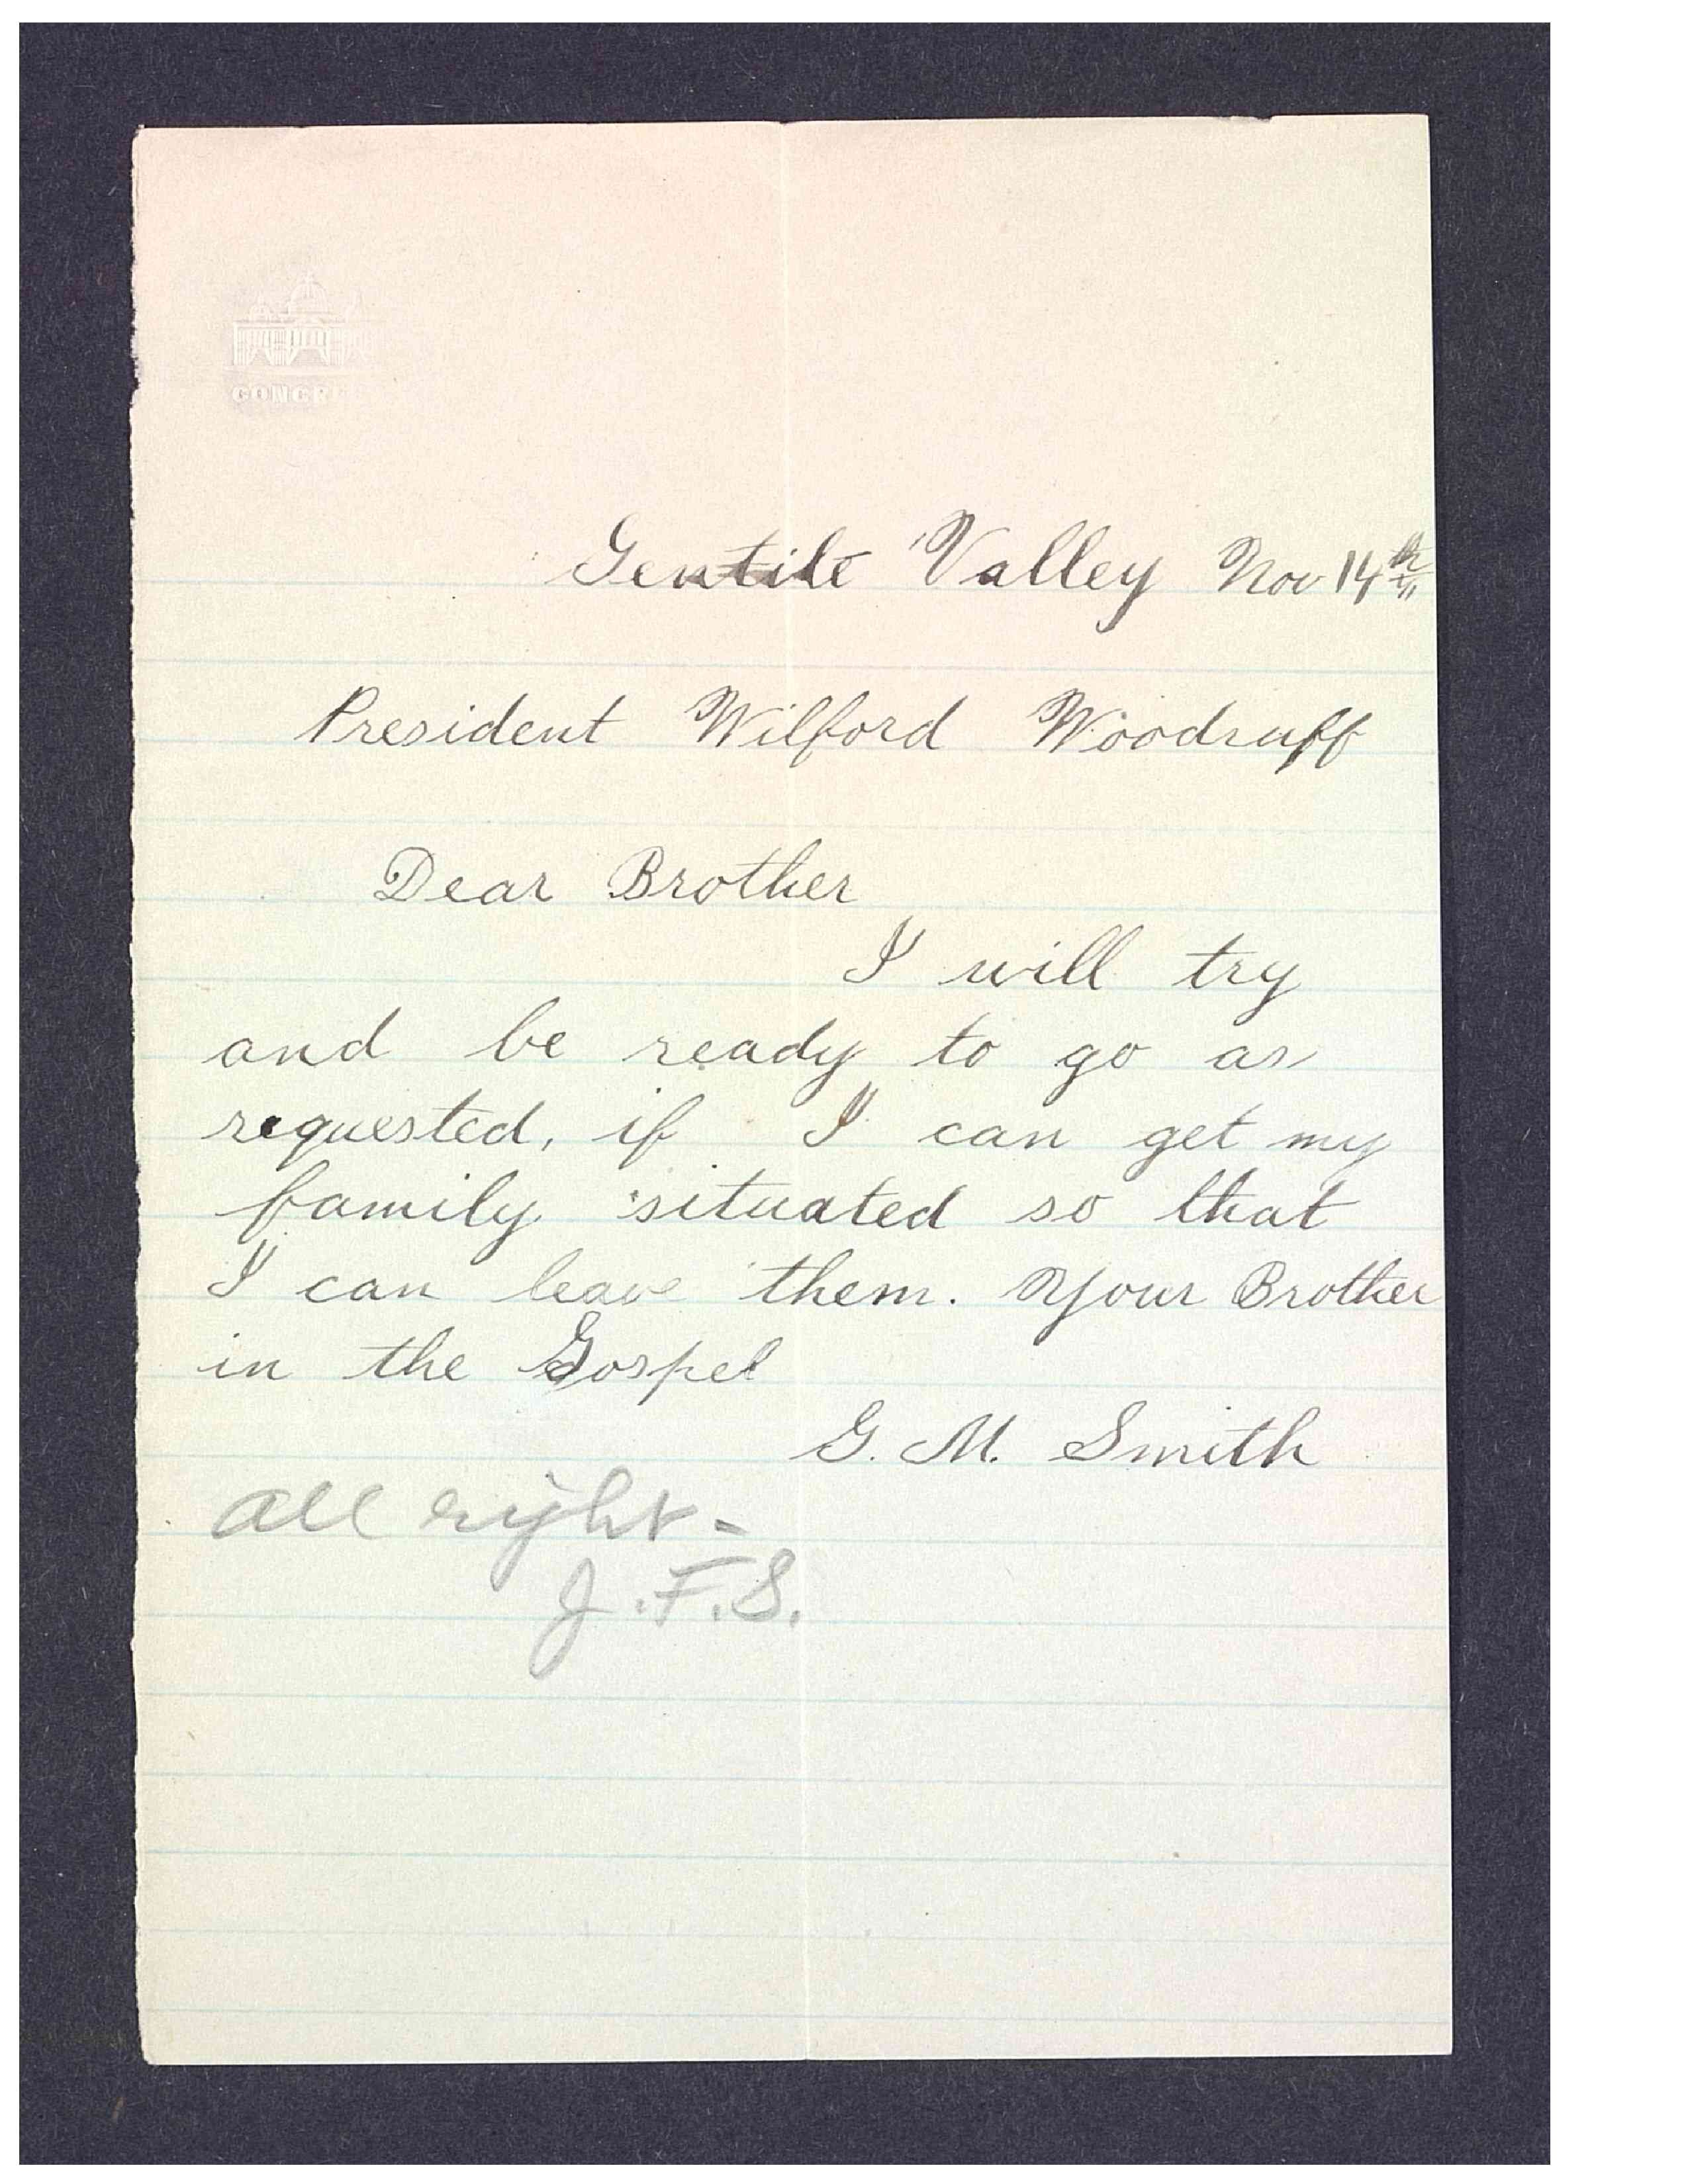 CONGR
Gentile Valley Nov 14th
President Wilford Woodruff
Dear Brother
I will try
and be ready to go as
requested, if I can get my
family situated so that
I can leave them. Your Brother
in the Gospel
G. M. Smith
all right -
J. F. S.